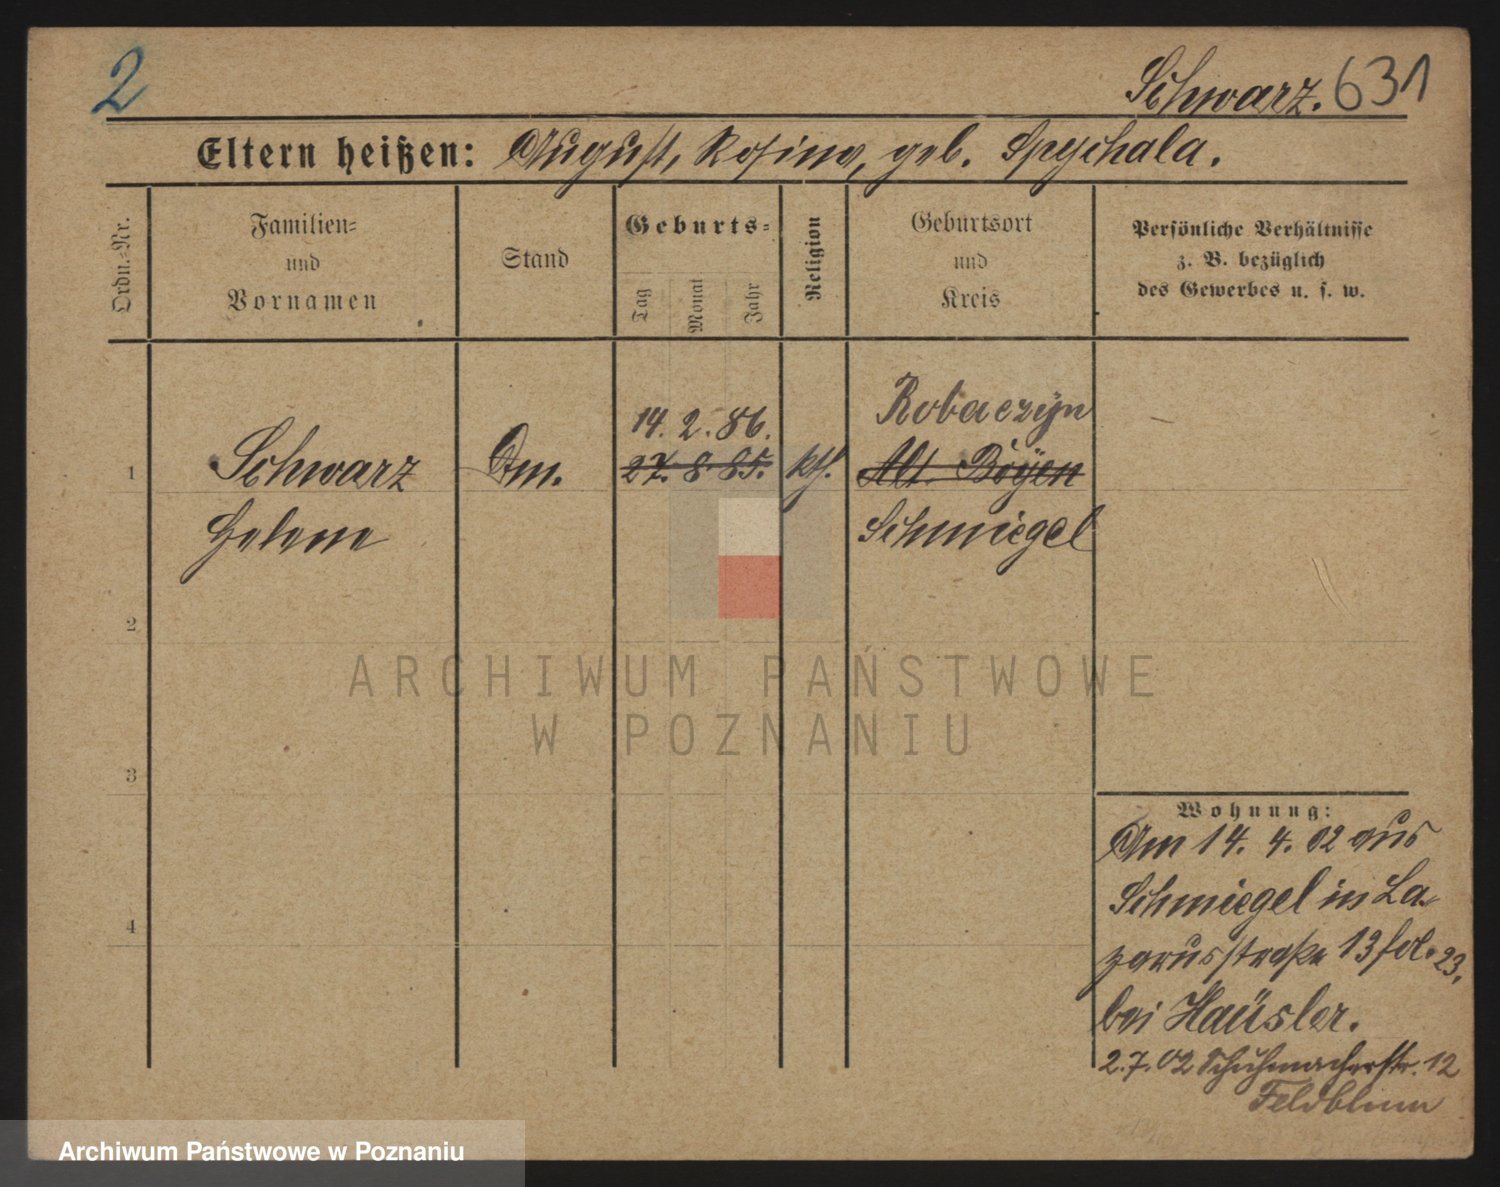 2
Schwarz. 631
Eltern heißen: August, Rosina, geb. Spychala.
Ordn.-Nr.
Familien-
und
Vornamen
Stand
Geburts-
Tag
Monat
Jahr
Religion
Geburtsort
und
Kreis
Persönliche Verhältnisse
z. B. bezüglich
des Gewerbes u. s. w.
14. 2. 86. Robaczyn
1 Schwarz 27. 8. 85. kth. Alt. Böyen
Helene Schmiegel
2
ARCHIWUM PAŃSTWOWE
W POZNANIU
3
4
Wohnung:
Am 14. 4. 02 aus
Schmiegel in La-
zarusstraße 13 fol. 23,
bei Haüsler.
2.7.02 Schuhmacherstr. 12
Feldblum
Archiwum Państwowe w Poznaniu